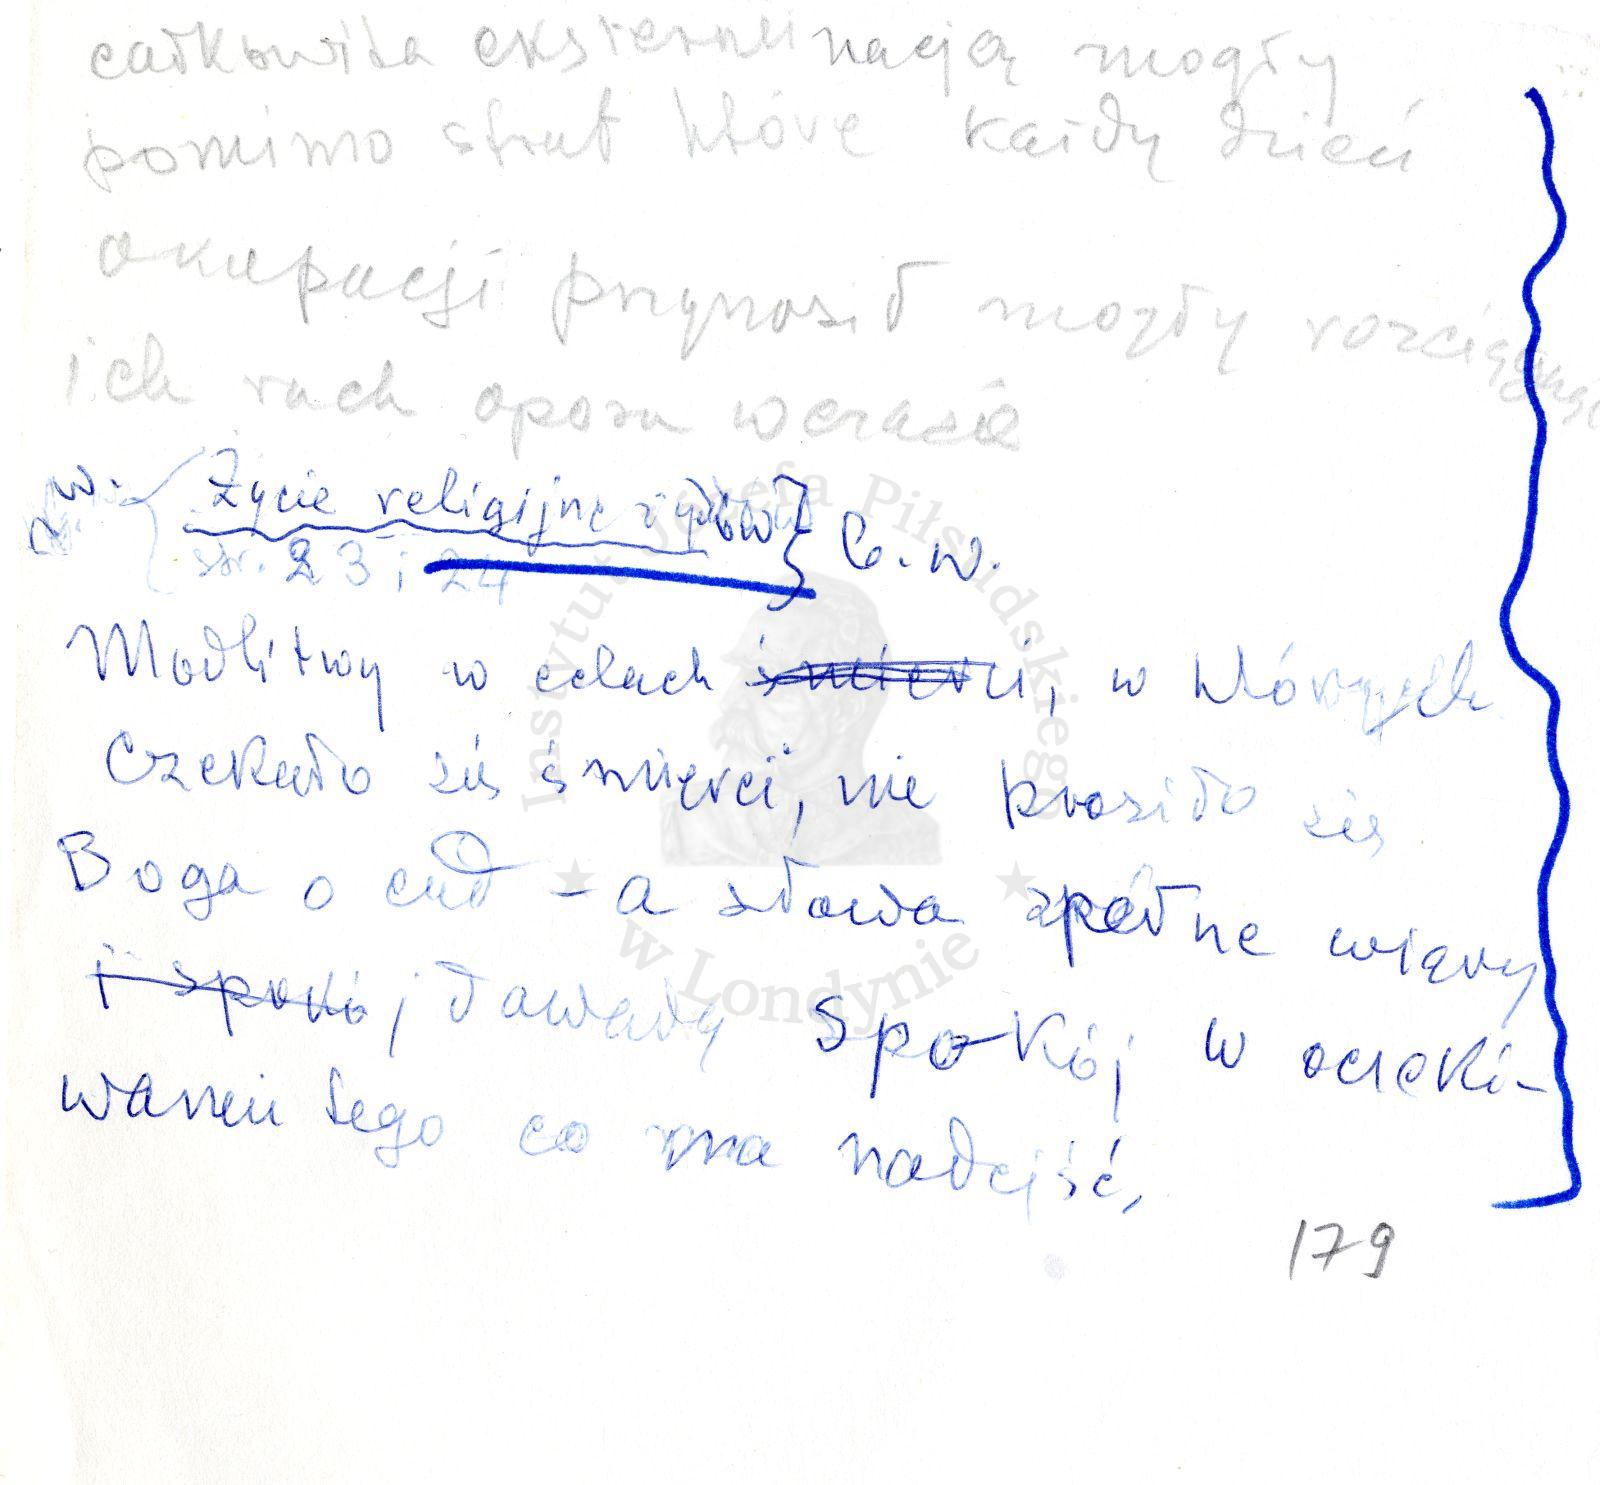 całkowita eksterminacją mogły
pomimo strat które każdy dzień
okupacji przynosił mogły rozciągnąć
ich ruch oporu w czasie
w. Życie religijne żydów C. w.
str. 23 i 24
Modlitwy w celach śmierci, w których
Czekało się śmierci, nie prosiło się
Boga o cud - a słowa pełne wiary
i spokój dawały Spokój w oczeki-
waniu tego co ma nadejść.
179
Instytut Józefa Piłsudskiego
w Londynie